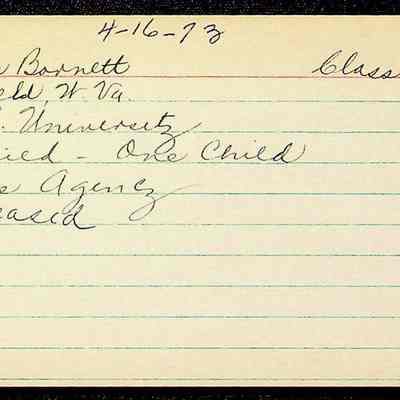 4-16-73
Barnett Class
eld, W. Va.
University
ied - One Child
s Agency
eased